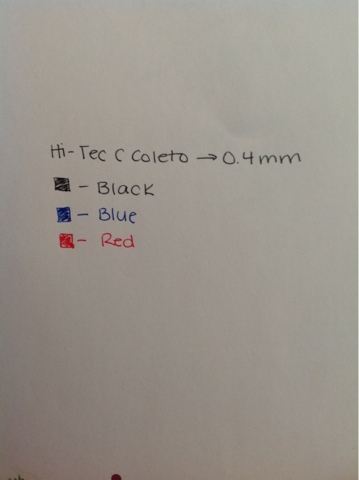 Hi-Tec C Coleto → 0.4mm
- Black
- Blue
- Red